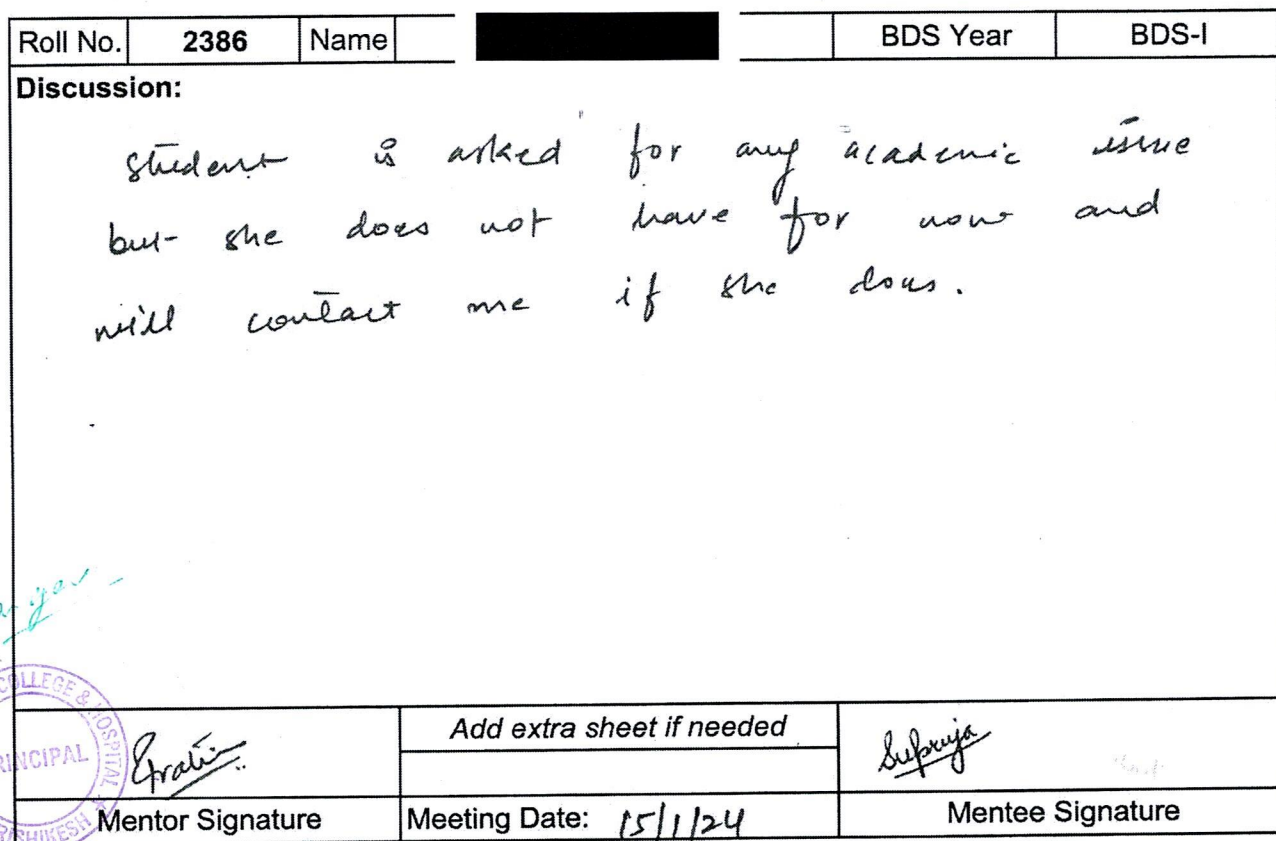 Roll No. 2386 Name BDS Year BDS-I
Discussion:
student is asked for any academic issue
but she does not have for now and
will contact me if she does.
COLLEGE & HOSPITAL
PRINCIPAL
RISHIKESH
Add extra sheet if needed
Supriya
Mentor Signature Meeting Date: 15/1/24 Mentee Signature